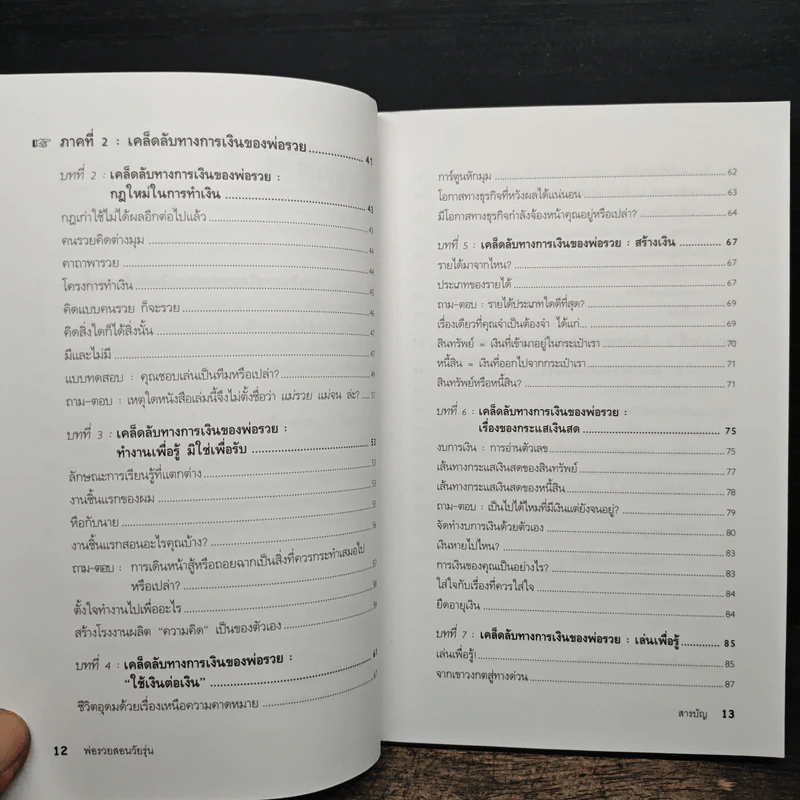 ☞ ภาคที่ 2 : เคล็ดลับทางการเงินของพ่อรวย 41
บทที่ 2 : เคล็ดลับทางการเงินของพ่อรวย :
กฎใหม่ในการทำเงิน 43
กฎเก่าใช้ไม่ได้ผลอีกต่อไปแล้ว 43
คนรวยคิดต่างมุม 44
คาถาพารวย 44
โครงการทำเงิน 45
คิดแบบคนรวย ก็จะรวย 46
คิดสิ่งใดก็ได้สิ่งนั้น 47
มีและไม่มี 47
แบบทดสอบ : คุณชอบเล่นเป็นทีมหรือเปล่า?
ถาม-ตอบ : เหตุใดหนังสือเล่มนี้จึงไม่ตั้งชื่อว่า แม่รวย แม่จน ล่ะ?
บทที่ 3 : เคล็ดลับทางการเงินของพ่อรวย :
ทำงานเพื่อรู้ มิใช่เพื่อรับ 53
ลักษณะการเรียนรู้ที่แตกต่าง 53
งานชิ้นแรกของผม
หือกับนาย 55
งานชิ้นแรกสอนอะไรคุณบ้าง? 56
ถาม-ตอบ : การเดินหน้าสู้หรือถอยฉากเป็นสิ่งที่ควรกระทำเสมอไป
หรือเปล่า? 57
ตั้งใจทำงานไปเพื่ออะไร 58
สร้างโรงงานผลิต "ความคิด" เป็นของตัวเอง 59
บทที่ 4 : เคล็ดลับทางการเงินของพ่อรวย :
"ใช้เงินต่อเงิน" 61
ชีวิตอุดมด้วยเรื่องเหนือความคาดหมาย
12 พ่อรวยสอนวัยรุ่น
การ์ตูนหักมุม 62
โอกาสทางธุรกิจที่หวังผลได้แน่นอน 63
มีโอกาสทางธุรกิจกำลังจ้องหน้าคุณอยู่หรือเปล่า? 64
บทที่ 5 : เคล็ดลับทางการเงินของพ่อรวย : สร้างเงิน 67
รายได้มาจากไหน? 67
ประเภทของรายได้ 67
ถาม-ตอบ : รายได้ประเภทใดดีที่สุด? 69
เรื่องเดียวที่คุณจำเป็นต้องจำ ได้แก่... 69
สินทรัพย์ = เงินที่เข้ามาอยู่ในกระเป๋าเรา 70
หนี้สิน = เงินที่ออกไปจากกระเป๋าเรา 71
สินทรัพย์หรือหนี้สิน? 71
บทที่ 6 : เคล็ดลับทางการเงินของพ่อรวย :
เรื่องของกระแสเงินสด 75
งบการเงิน : การอ่านตัวเลข 75
เส้นทางกระแสเงินสดของสินทรัพย์ 77
เส้นทางกระแสเงินสดของหนี้สิน 78
ถาม-ตอบ : เป็นไปได้ไหมที่มีเงินแต่ยังจนอยู่? 79
จัดทำงบการเงินด้วยตัวเอง 80
เงินหายไปไหน? 83
การเงินของคุณเป็นอย่างไร? 83
ใส่ใจกับเรื่องที่ควรใส่ใจ 84
ยืดอายุเงิน 84
บทที่ 7 : เคล็ดลับทางการเงินของพ่อรวย : เล่นเพื่อรู้ 85
เล่นเพื่อรู้! 85
จากเขาวงกตสู่ทางด่วน 87
สารบัญ 13